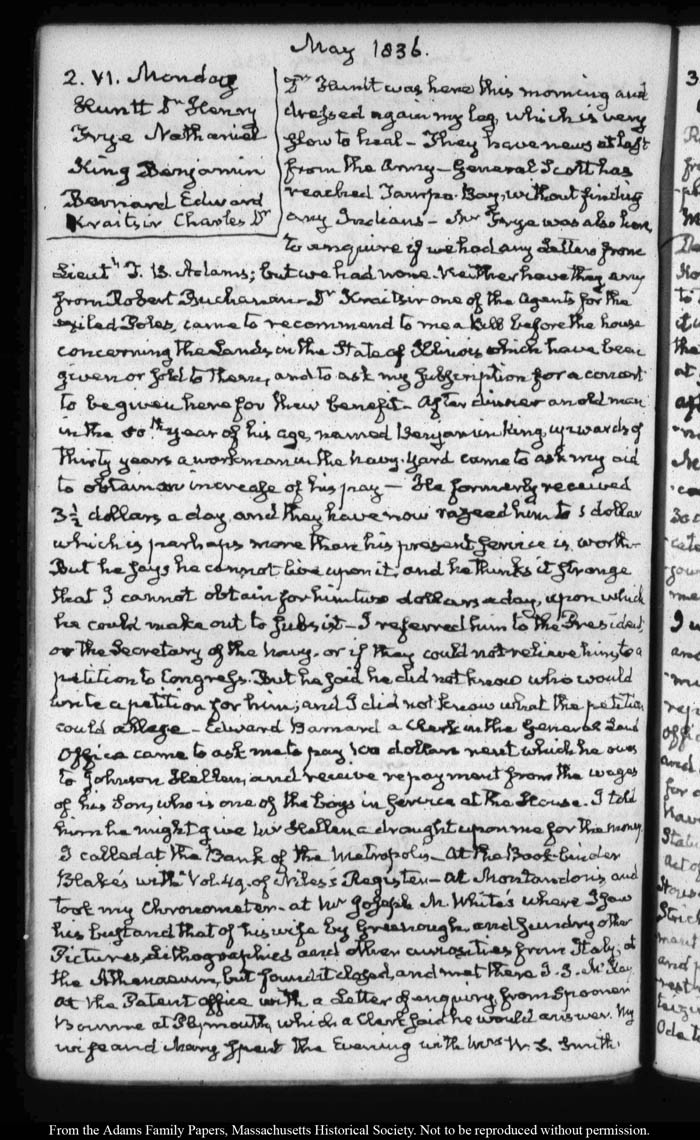 May 1836.
2. VI. Monday
Huntt Dr Henry
Frye Nathaniel
King Benjamin
Barnard Edward
Kraitsir Charles Dr
Dr Huntt was here this morning and
dressed again my leg, which is very
slow to heal – They have news at last
from the Army – General Scott has
reached Tampa Bay, without finding
any Indians – Mr Frye was also here,
to enquire if we had any Letters from
Lieutt J. B. Adams; but we had none. Neither have they any
from Robert Buchanan – Dr Kraitsir one of the Agents for the
exiled Poles, came to recommend to me a Bill before the house
concerning the Lands, in the State of Illinois which have been
given or sold to them, and to ask my subscription for a concert
to be given here for their benefit – After dinner an old man
in the 80th year of his age, named Benjamin King, upwards of
thirty years a workman in the navy-yard came to ask my aid
to obtain an increase of his pay – He formerly received
3½ dollars a day, and they have now razeed him to 1 dollar
which is perhaps more than his present service is worth –
But he says he cannot live upon it; and he thinks it strange
that I cannot obtain for him two dollars a day, upon which
he could make out to subsist – I referred him to the President,
or the Secretary of the navy – or if they could not relieve him, to a
petition to Congress. But he said he did not know who would
write a petition for him; and I did not know what the petition
could allege – Edward Barnard a Clerk in the General Land
Office came to ask me to pay 100 dollars rent which he owes
to Johnson Hellen, and receive repayment from the wages
of his Son, who is one of the boys in service at the House. I told
him he might give Mr Hellen a draught upon me for the money.
I called at the Bank of the Metropolis – At the Book-binder
Blake's with Vol. 49. of Niles's Register – At Montandon's and
took my Chronometer – at Mr Joseph M. White's where I saw
his bust and that of his wife by Greenough, and sundry other
Pictures, Lithographies and other curiosities from Italy; at
the Athenaeum, but found it closed, and met there J. S.
At the Patent office with a Letter of enquiry from Spooner
Bourne at Plymouth, which a Clerk said he would answer. My
wife and Mary spent the Evening with Mrs W. S. Smith.
From the Adams Family Papers, Massachusetts Historical Society. Not to be reproduced without permission.